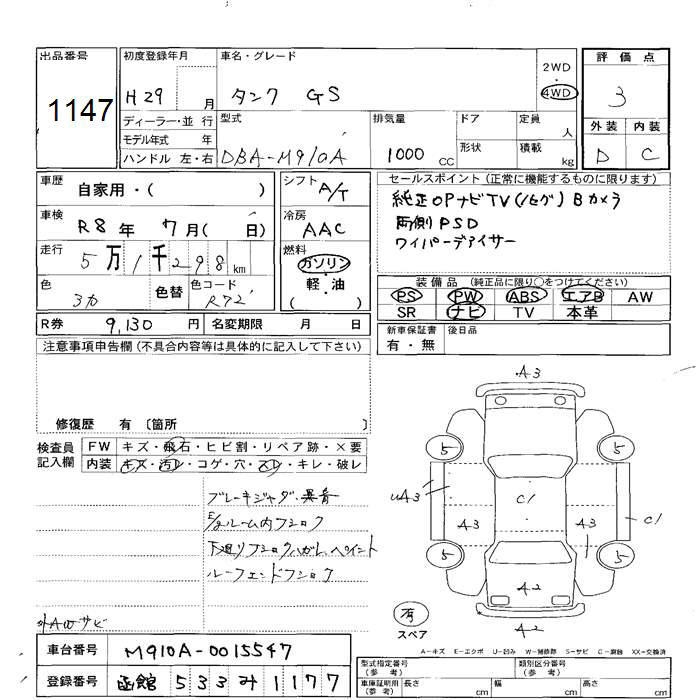 出品番号
1147
初度登録年月
H29 月
車名・グレード
タンク GS
2WD
・
4WD
評価点
3
ディーラー・並 行
モデル年式 年
ハンドル 左・右
型式
DBA-M910A
排気量
1000 CC
ドア
定員
人
形状
積載
kg
外装
内装
D
C
車歴
自家用・( )
シフト
A/T
セールスポイント (正常に機能するものに限ります)
純正OPナビTV(ﾉｾｸﾞ) Bカメラ
両側PSD
ワイパーデアイサー
車検
R8 年 7月( 日)
冷房
AAC
走行
5万1千298km
燃料
ガソリン
軽・油
( )
色
3カ
色替
色コード
R72
装備品 (純正品に限り○をつけてください)
PS PW ABS エアB AW
SR ナビ TV 本革
R券 9,130 円
名変期限 月 日
新車保証書
有・無
後日品
注意事項申告欄 (不具合内容等は具体的に記入して下さい)
修復歴 有 〔箇所 〕
検査員
記入欄
FW キズ・飛石・ヒビ割・リペア跡・×要
内装 キズ・汚レ・コゲ・穴・スレ・キレ・破レ
ブレーキジャダ・異音
E/gルーム内フショク
下廻りフショク、ハガレ、ペイント
ルーフエンドフショク
外AWサビ
A3
5
5
uA3
C1
A3
A3
C1
5
5
A2
A2
有
スペア
A－キズ E－エクボ U－凹み W－補修跡 S－サビ C－腐蝕 XX－交換済
車台番号 M910A-0015547
登録番号 函館 533 み 1177
型式指定番号
(参 考)
類別区分番号
(参 考)
車庫証明用
(参 考)
長さ
cm
幅
cm
高さ
cm